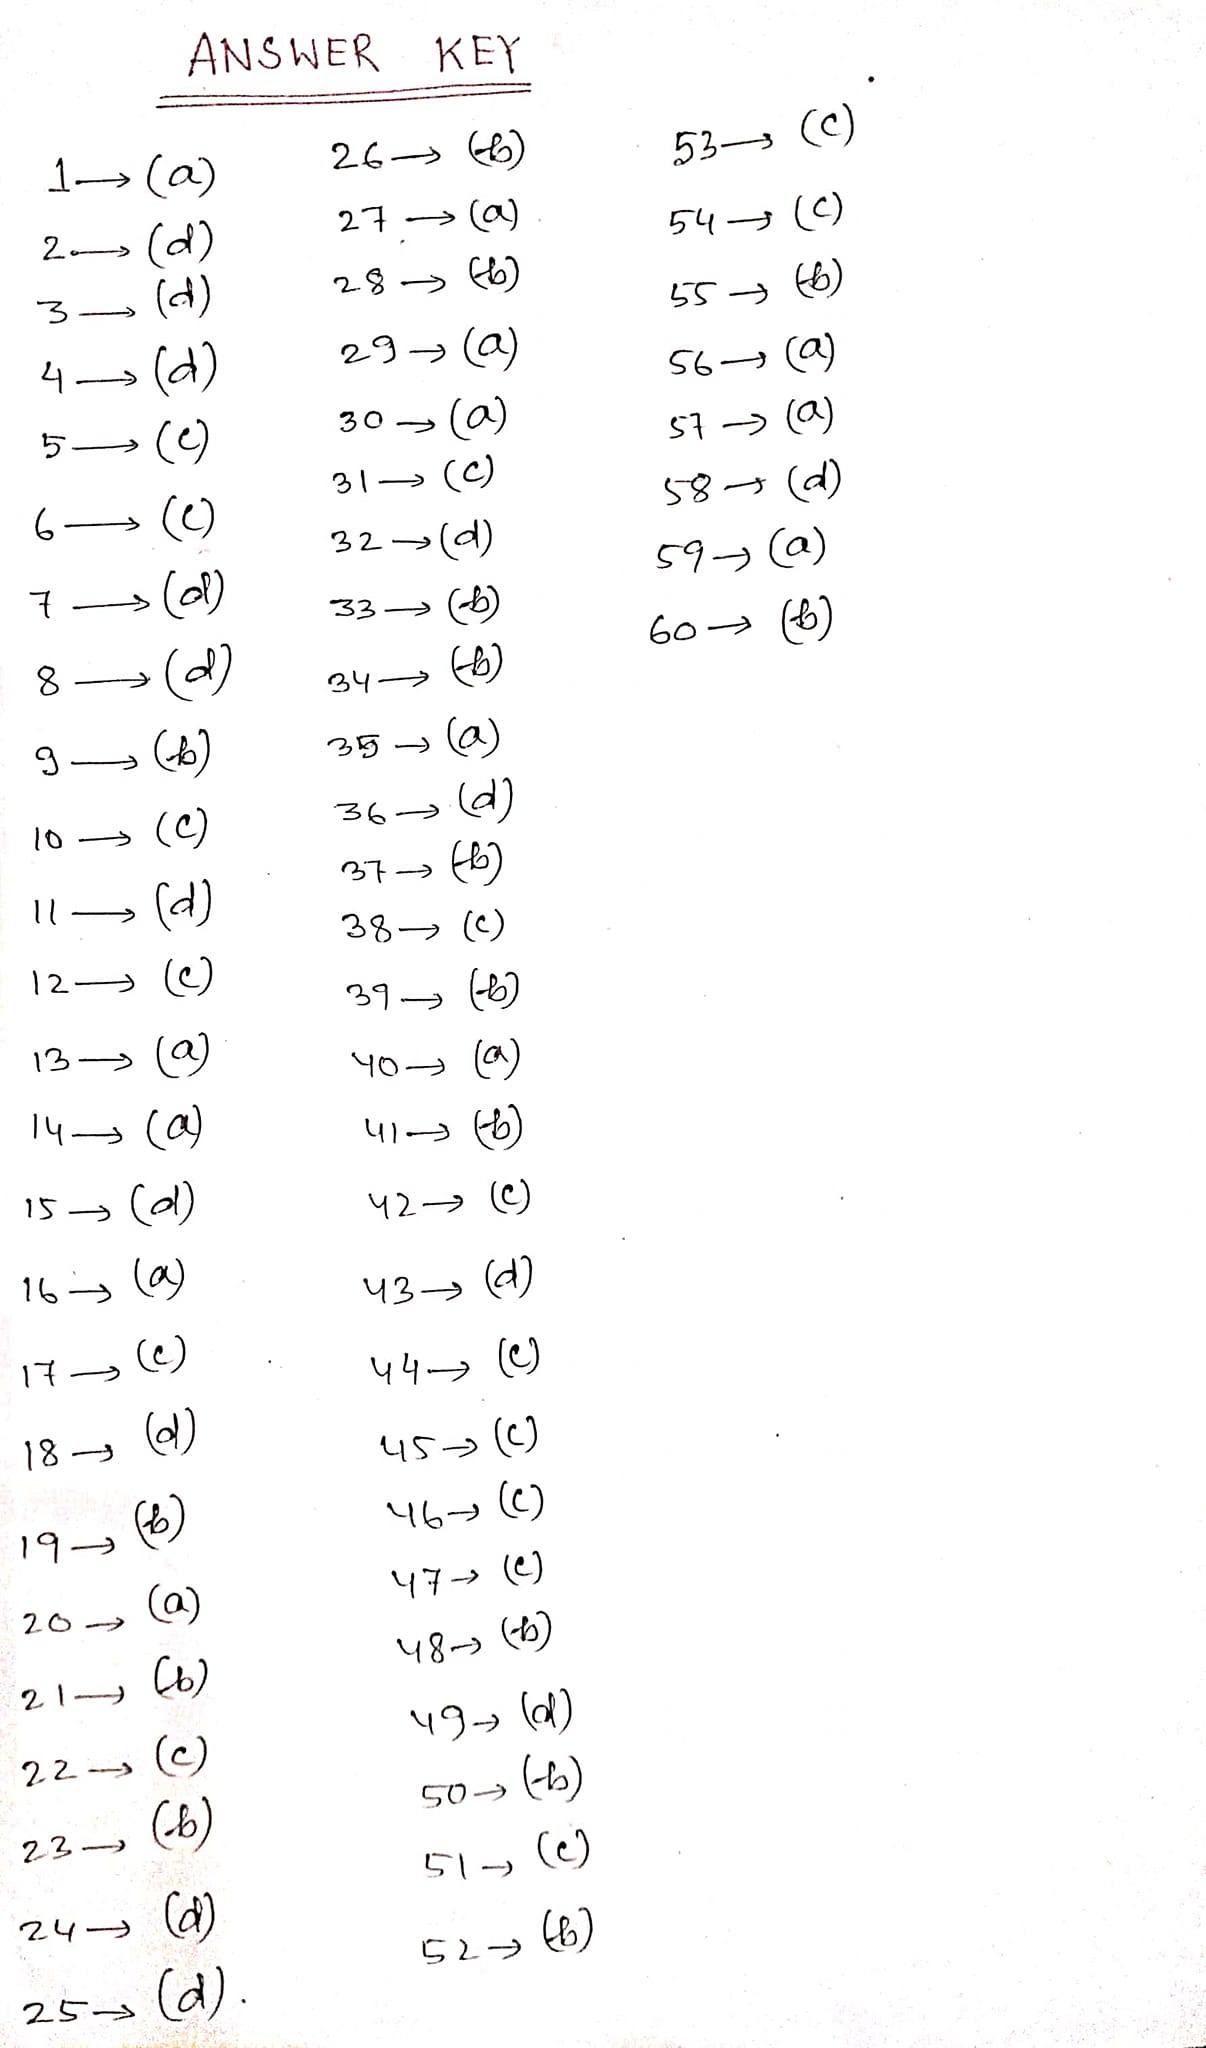 ANSWER KEY
1→(a)
2→(d)
3→(d)
4→(d)
5→(c)
6→(c)
7→(d)
8→(d)
9→(b)
10→(c)
11→(d)
12→(c)
13→(a)
14→(a)
15→(d)
16→(a)
17→(c)
18→(d)
19→(b)
20→(a)
21→(b)
22→(c)
23→(b)
24→(d)
25→(d).
26→(b)
27→(a)
28→(b)
29→(a)
30→(a)
31→(c)
32→(d)
33→(b)
34→(b)
35→(a)
36→(d)
37→(b)
38→(c)
39→(b)
40→(a)
41→(b)
42→(c)
43→(d)
44→(c)
45→(c)
46→(c)
47→(c)
48→(b)
49→(d)
50→(b)
51→(c)
52→(b)
53→(c)
54→(c)
55→(b)
56→(a)
57→(a)
58→(d)
59→(a)
60→(b)